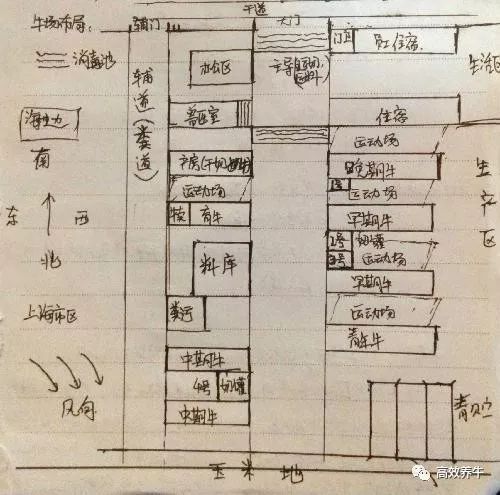 干道
牛场布局:
辅门
大门
消毒池
辅道(粪道)
办公区
门卫
员工住宿
生活区
兽医室
住宿
南
东
西
北
运动场
运动场
晚期牛
1号
运动场
犊
育牛
早期牛
1号
奶罐
3号
运动场
料库
早期牛
生产区
上海市区
粪污
运动场
青年牛
中期牛
4号
奶罐
中期牛
风向
青贮窖
玉米地
高效养牛